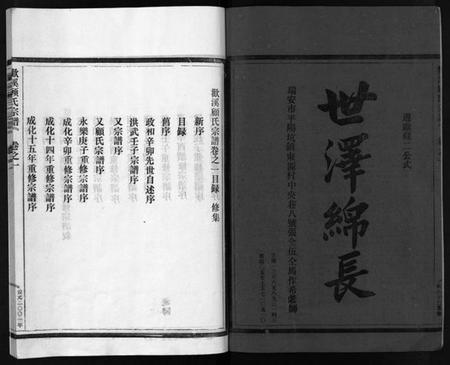 遵顯蘇二公式
世澤綿長
瑞安市平陽坑鎮東源村中央巷八號張金伍仝馬作希蕊歸
歙溪顧氏宗譜卷之一目錄 修集
新序
目錄
舊序
政和辛卯先世自述序
洪武壬子宗譜序
又宗譜序
又顧氏宗譜序
永樂庚子重修宗譜序
成化辛卯重修宗譜序
成化十四年重修宗譜序
成化十五年重修宗譜序
歙溪顧氏宗譜 卷之一
公元二〇〇一年